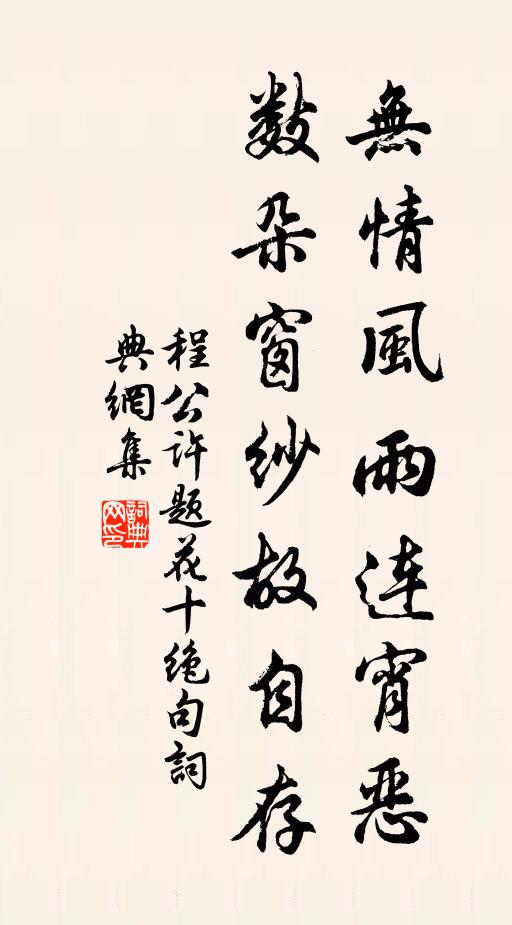 無情風雨連宵惡
數朵窗紗故自存
程公許題花十絶句詞
典網集
詞典
网印